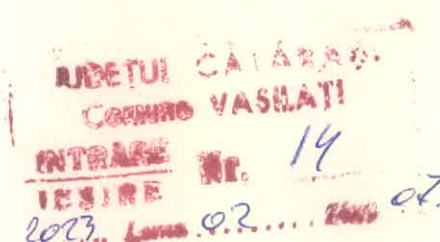 JUDETUL CĂLĂRAȘI
Comuna VASILAȚI
INTRARE Nr. 14
IESIRE
2023 Luna 02 Ziua 07